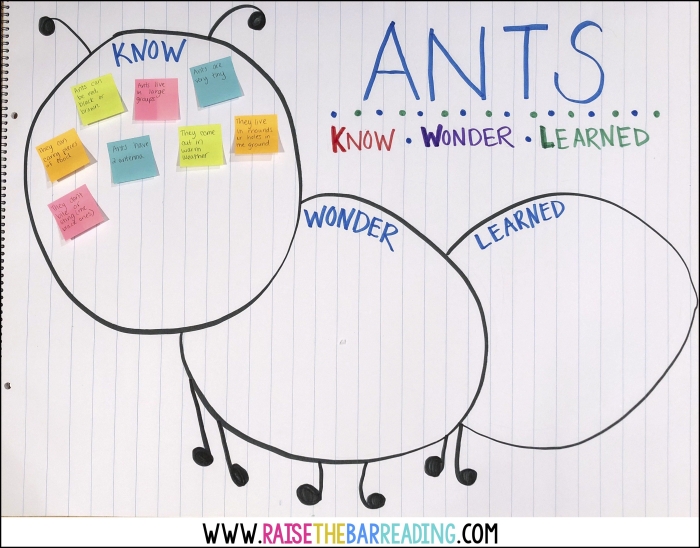 ANTS
KNOW · WONDER · LEARNED
KNOW
Ants can
be red,
black or
brown
Ants live
in large
groups
Ants are
very tiny
They can
carry pieces
of food
Ants have
2 antenna
They come
out in
warm
weather
They live
in mounds
or holes in
the ground
They don't
bite or
sting (the
black ones)
WONDER
LEARNED
WWW.RAISETHEBARREADING.COM